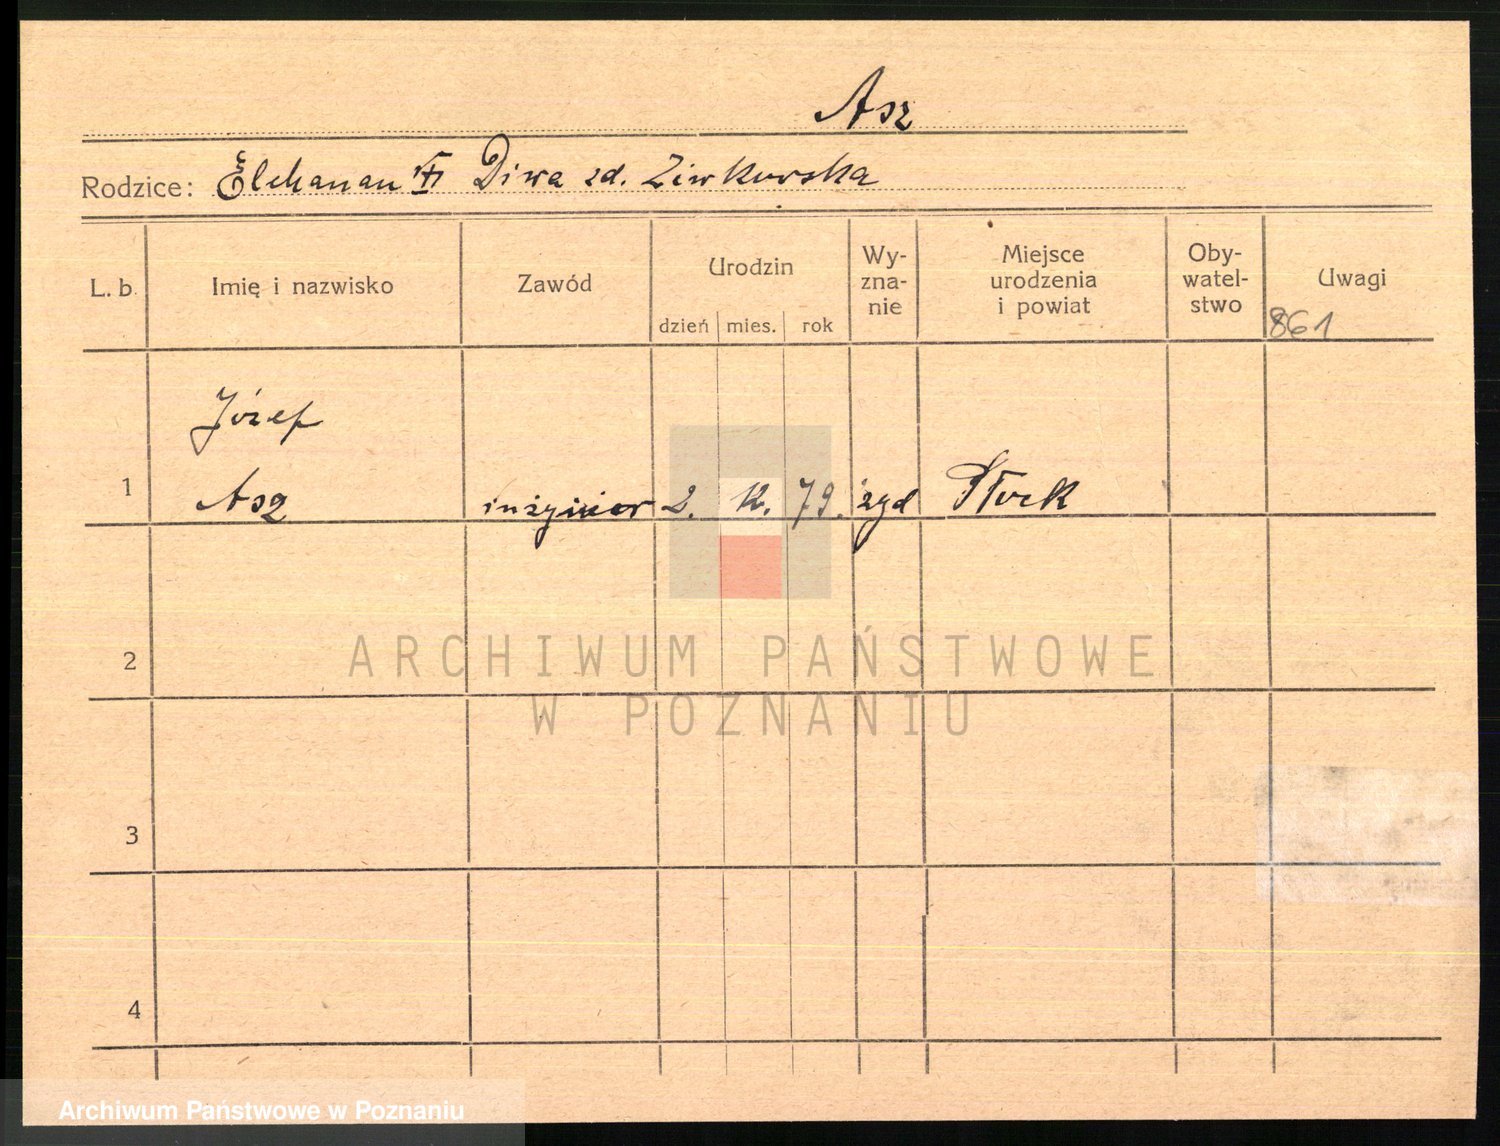 Asz
Rodzice: Elchanan Diwa zd. Ziwkurska
L. b. Imię i nazwisko Zawód Urodzin dzień mies. rok Wyznanie Miejsce urodzenia i powiat Obywatelstwo Uwagi
861
Józef
1 Asz inżynier 2. 12. 79. żyd Płock
2
3
4
ARCHIWUM PAŃSTWOWE
W POZNANIU
Archiwum Państwowe w Poznaniu